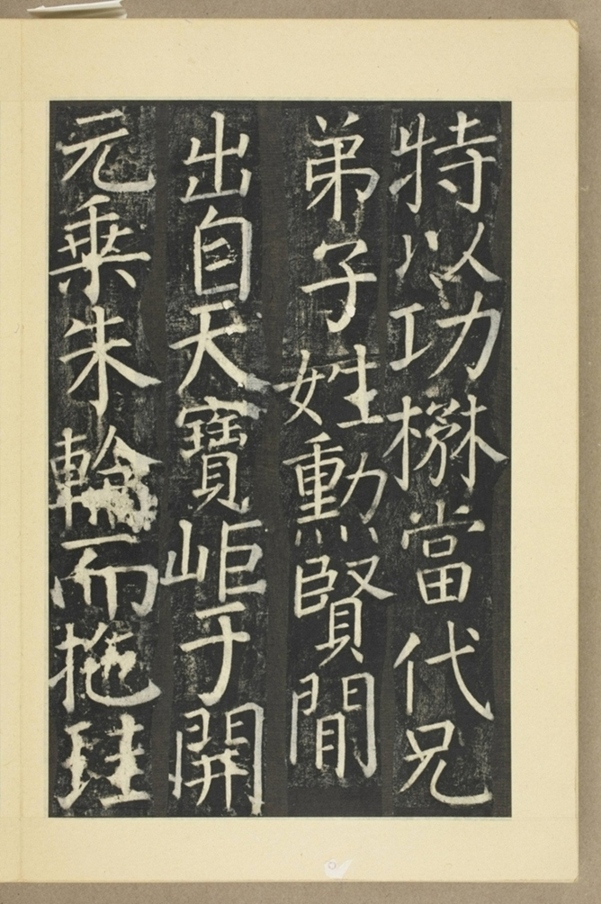 特以功楙當代兄
弟子姓勳賢間
出自天寶岠于開
元乗朱輪而拖珪